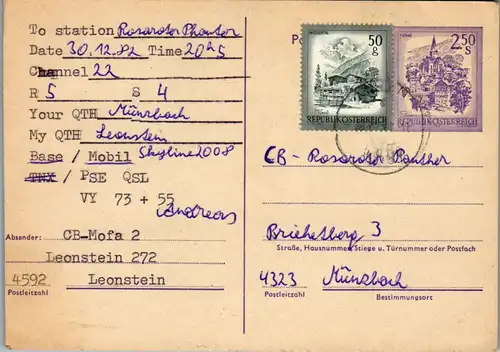 To station Rosaroter Phantor
Date 30.12.82 Time 20h5
Channel 22
R 5 S 4
Your QTH Münzbach
My QTH Leonstein
Base / Mobil Skyline 2008
TNX / PSE QSL
VY 73 + 55
Andreas
Absender: CB-Mofa 2
Leonstein 272
4592 Leonstein
Postleitzahl
50 g
REPUBLIK ÖSTERREICH
2.50 S
REPUBLIK ÖSTERREICH
CB - Rosaroter Panther
3
Straße, Hausnummer, Stiege u. Türnummer oder Postfach
4323 Münzbach
Postleitzahl Bestimmungsort